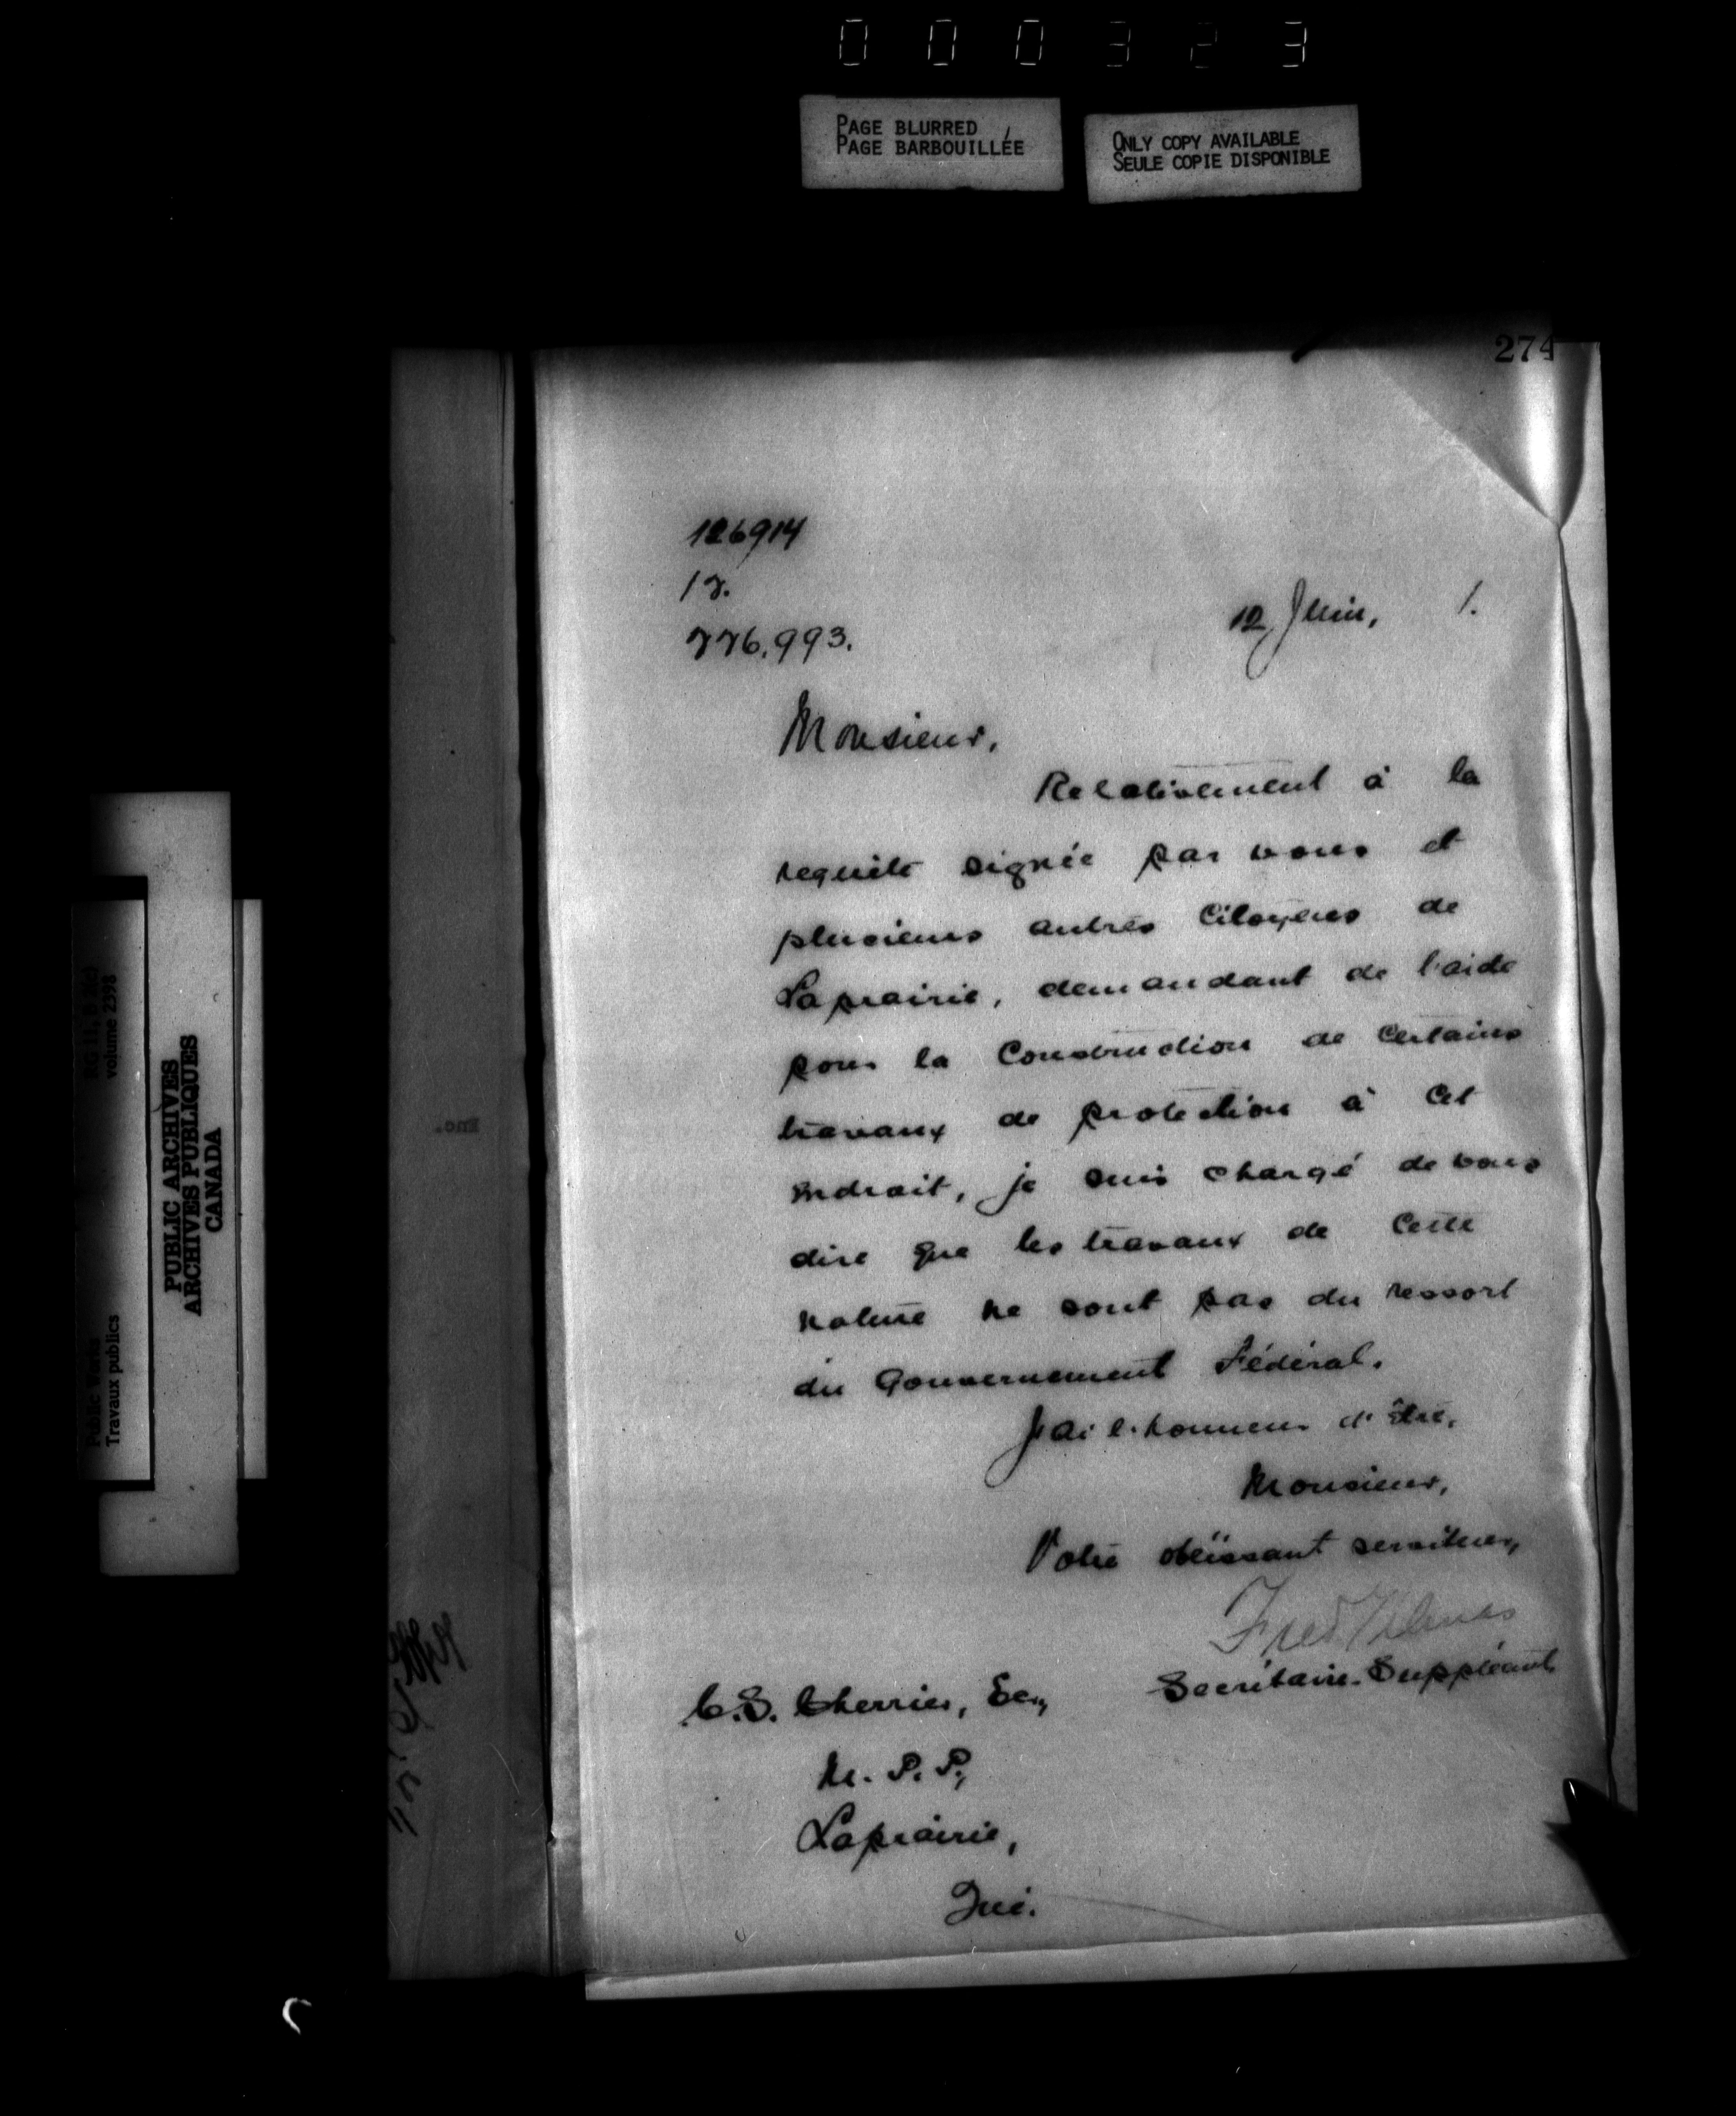 000323
PAGE BLURRED
PAGE BARBOUILLÉE
ONLY COPY AVAILABLE
SEULE COPIE DISPONIBLE
274
126914
12 Juin, 1.
776,993.
Monsieur,
Relativement à la
requête signée par vous et
plusieurs autres Citoyens de
Laprairie, demandant de l'aide
pour la Construction de Certains
travaux de protection à Cet
endroit, je suis chargé de vous
dire que les travaux de Cette
nature ne sont pas du ressort
du Gouvernement Fédéral.
J'ai l'honneur d'être,
Monsieur,
Votre obéissant serviteur,
Fred
Secrétaire-Suppléant
C.S. Cherrier, Ec.,
M.P.P.,
Laprairie,
Qué.
RG 11, B 1(c)
volume 2398
PUBLIC ARCHIVES
ARCHIVES PUBLIQUES
CANADA
Public Works
Travaux publics
Inc.